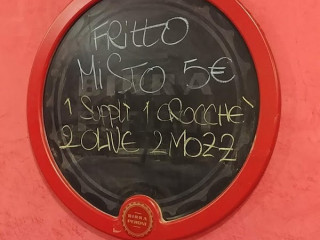 FRITTO
MISTO 5€
1 SUPPLÌ 1 CROCCHE'
2 OLIVE 2 MOZZ
BIRRA
PERONI